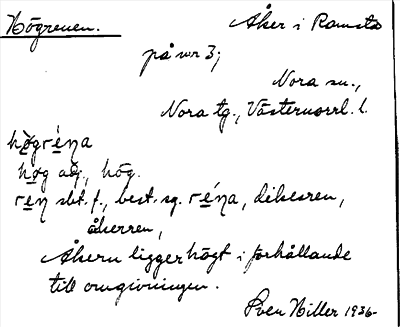 Högrenen. Åker i Ramsta
på nr 3;
Nora sn.,
Nora tg., Västernorrl. l.
hògréna
høg adj., hög.
ren sbt. f., best. sg. réna, dikesren,
åkerren,
Åkern ligger högt i förhållande
till omgivningen.
Sven Hiller 1936